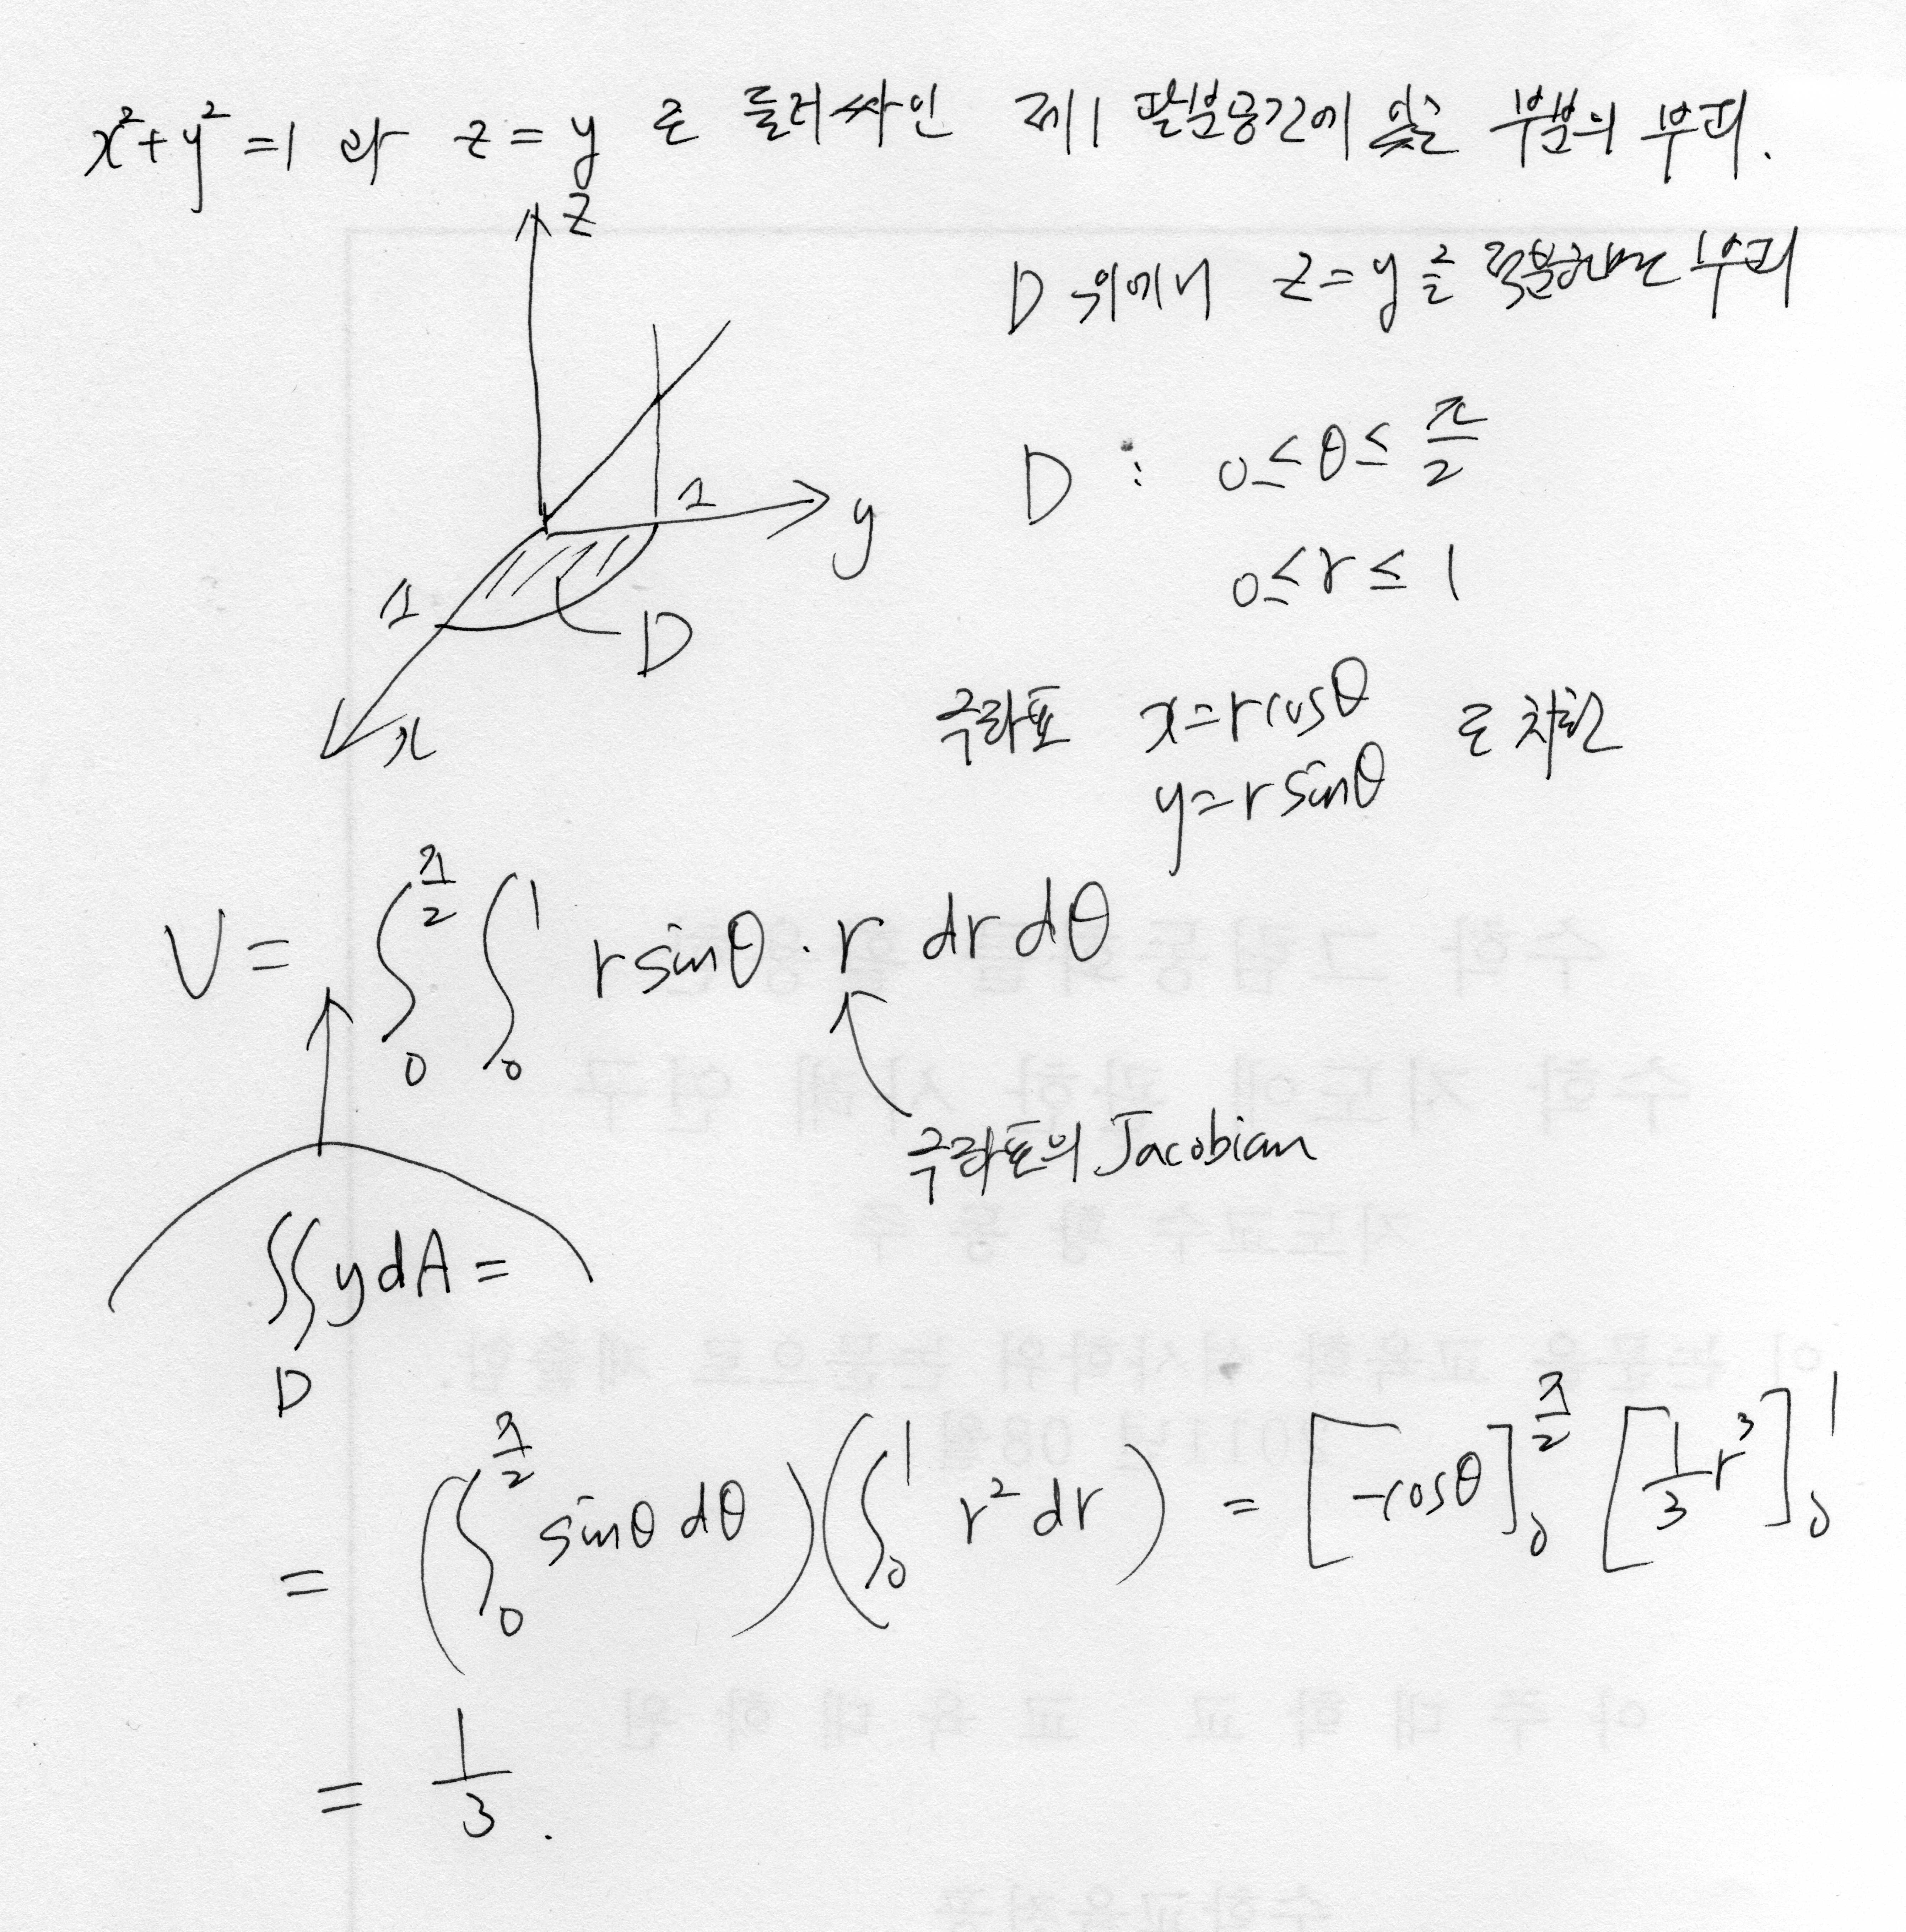 x²+y²=1 과 z=y 로 둘러싸인 제1 팔분공간에 있는 부분의 부피.
z
D 위에서 z=y 를 적분하면 부피
1
y
D : 0≤θ≤π/2
0≤r≤1
1
D
x
극좌표 x=rcosθ 로 치환
y=rsinθ
V= ∫₀^(π/2) ∫₀^1 rsinθ·r dr dθ
극좌표의 Jacobian
∬_D ydA=
= (∫₀^(π/2) sinθ dθ)(∫₀^1 r² dr) = [-cosθ]₀^(π/2) [1/3 r³]₀^1
= 1/3.
수학 그림동화를 활용한
수학 지도에 관한 사례 연구
지도교수
이 논문을 교육학 석사학위 논문으로 제출함.
2011년 08월
아주대학교 교육대학원
수학교육전공